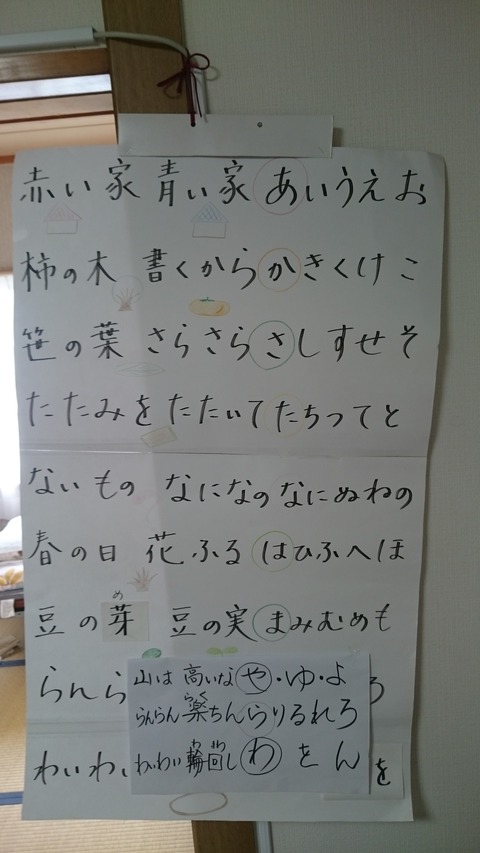 赤い家 青い家 あいうえお
柿の木 書くから かきくけこ
笹の葉 さらさら さしすせそ
たたみを たたいて たちつてと
ないもの なになの なにぬねの
春の日 花ふる はひふへほ
め
豆の芽 豆の実 まみむめも
山は 高いな や・ゆ・よ
らんら
ろ
らく
らんらん 楽ちん らりるれろ
わ まわ
わいわい 輪回し わ を ん
わいわい
を